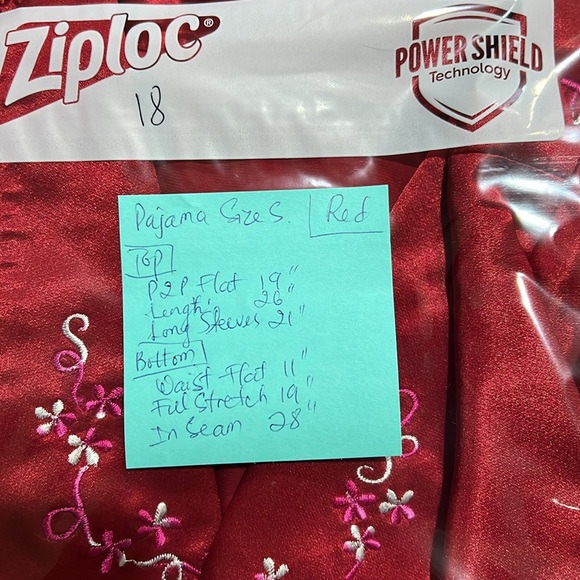 Ziploc®
POWER SHIELD
Technology
18
Pajama Size S. Red
Top
P2P Flat 19"
Length 26"
Long Sleeves 21"
Bottom
Waist Flat 11"
Full Stretch 19"
In Seam 28"